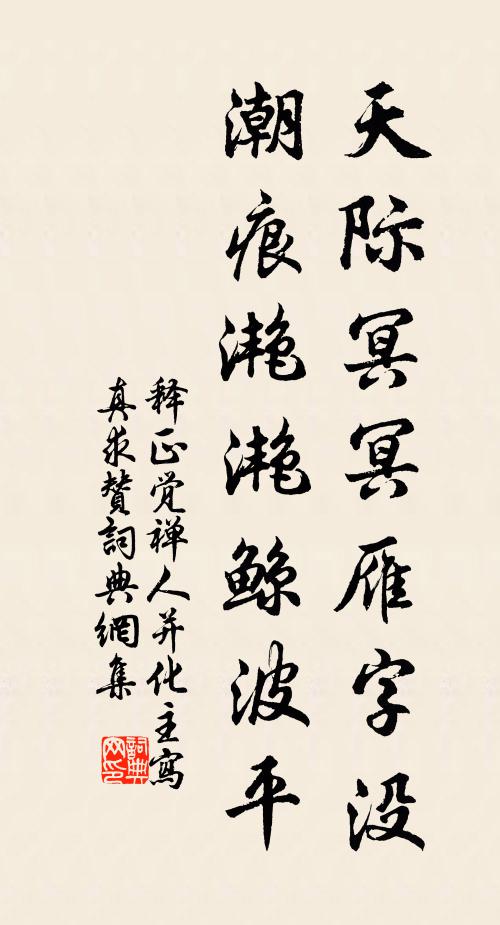 天际冥冥雁字没
潮痕滟滟鲸波平
释正觉禅人并化主写
真求赞詞典網集
詞典网印